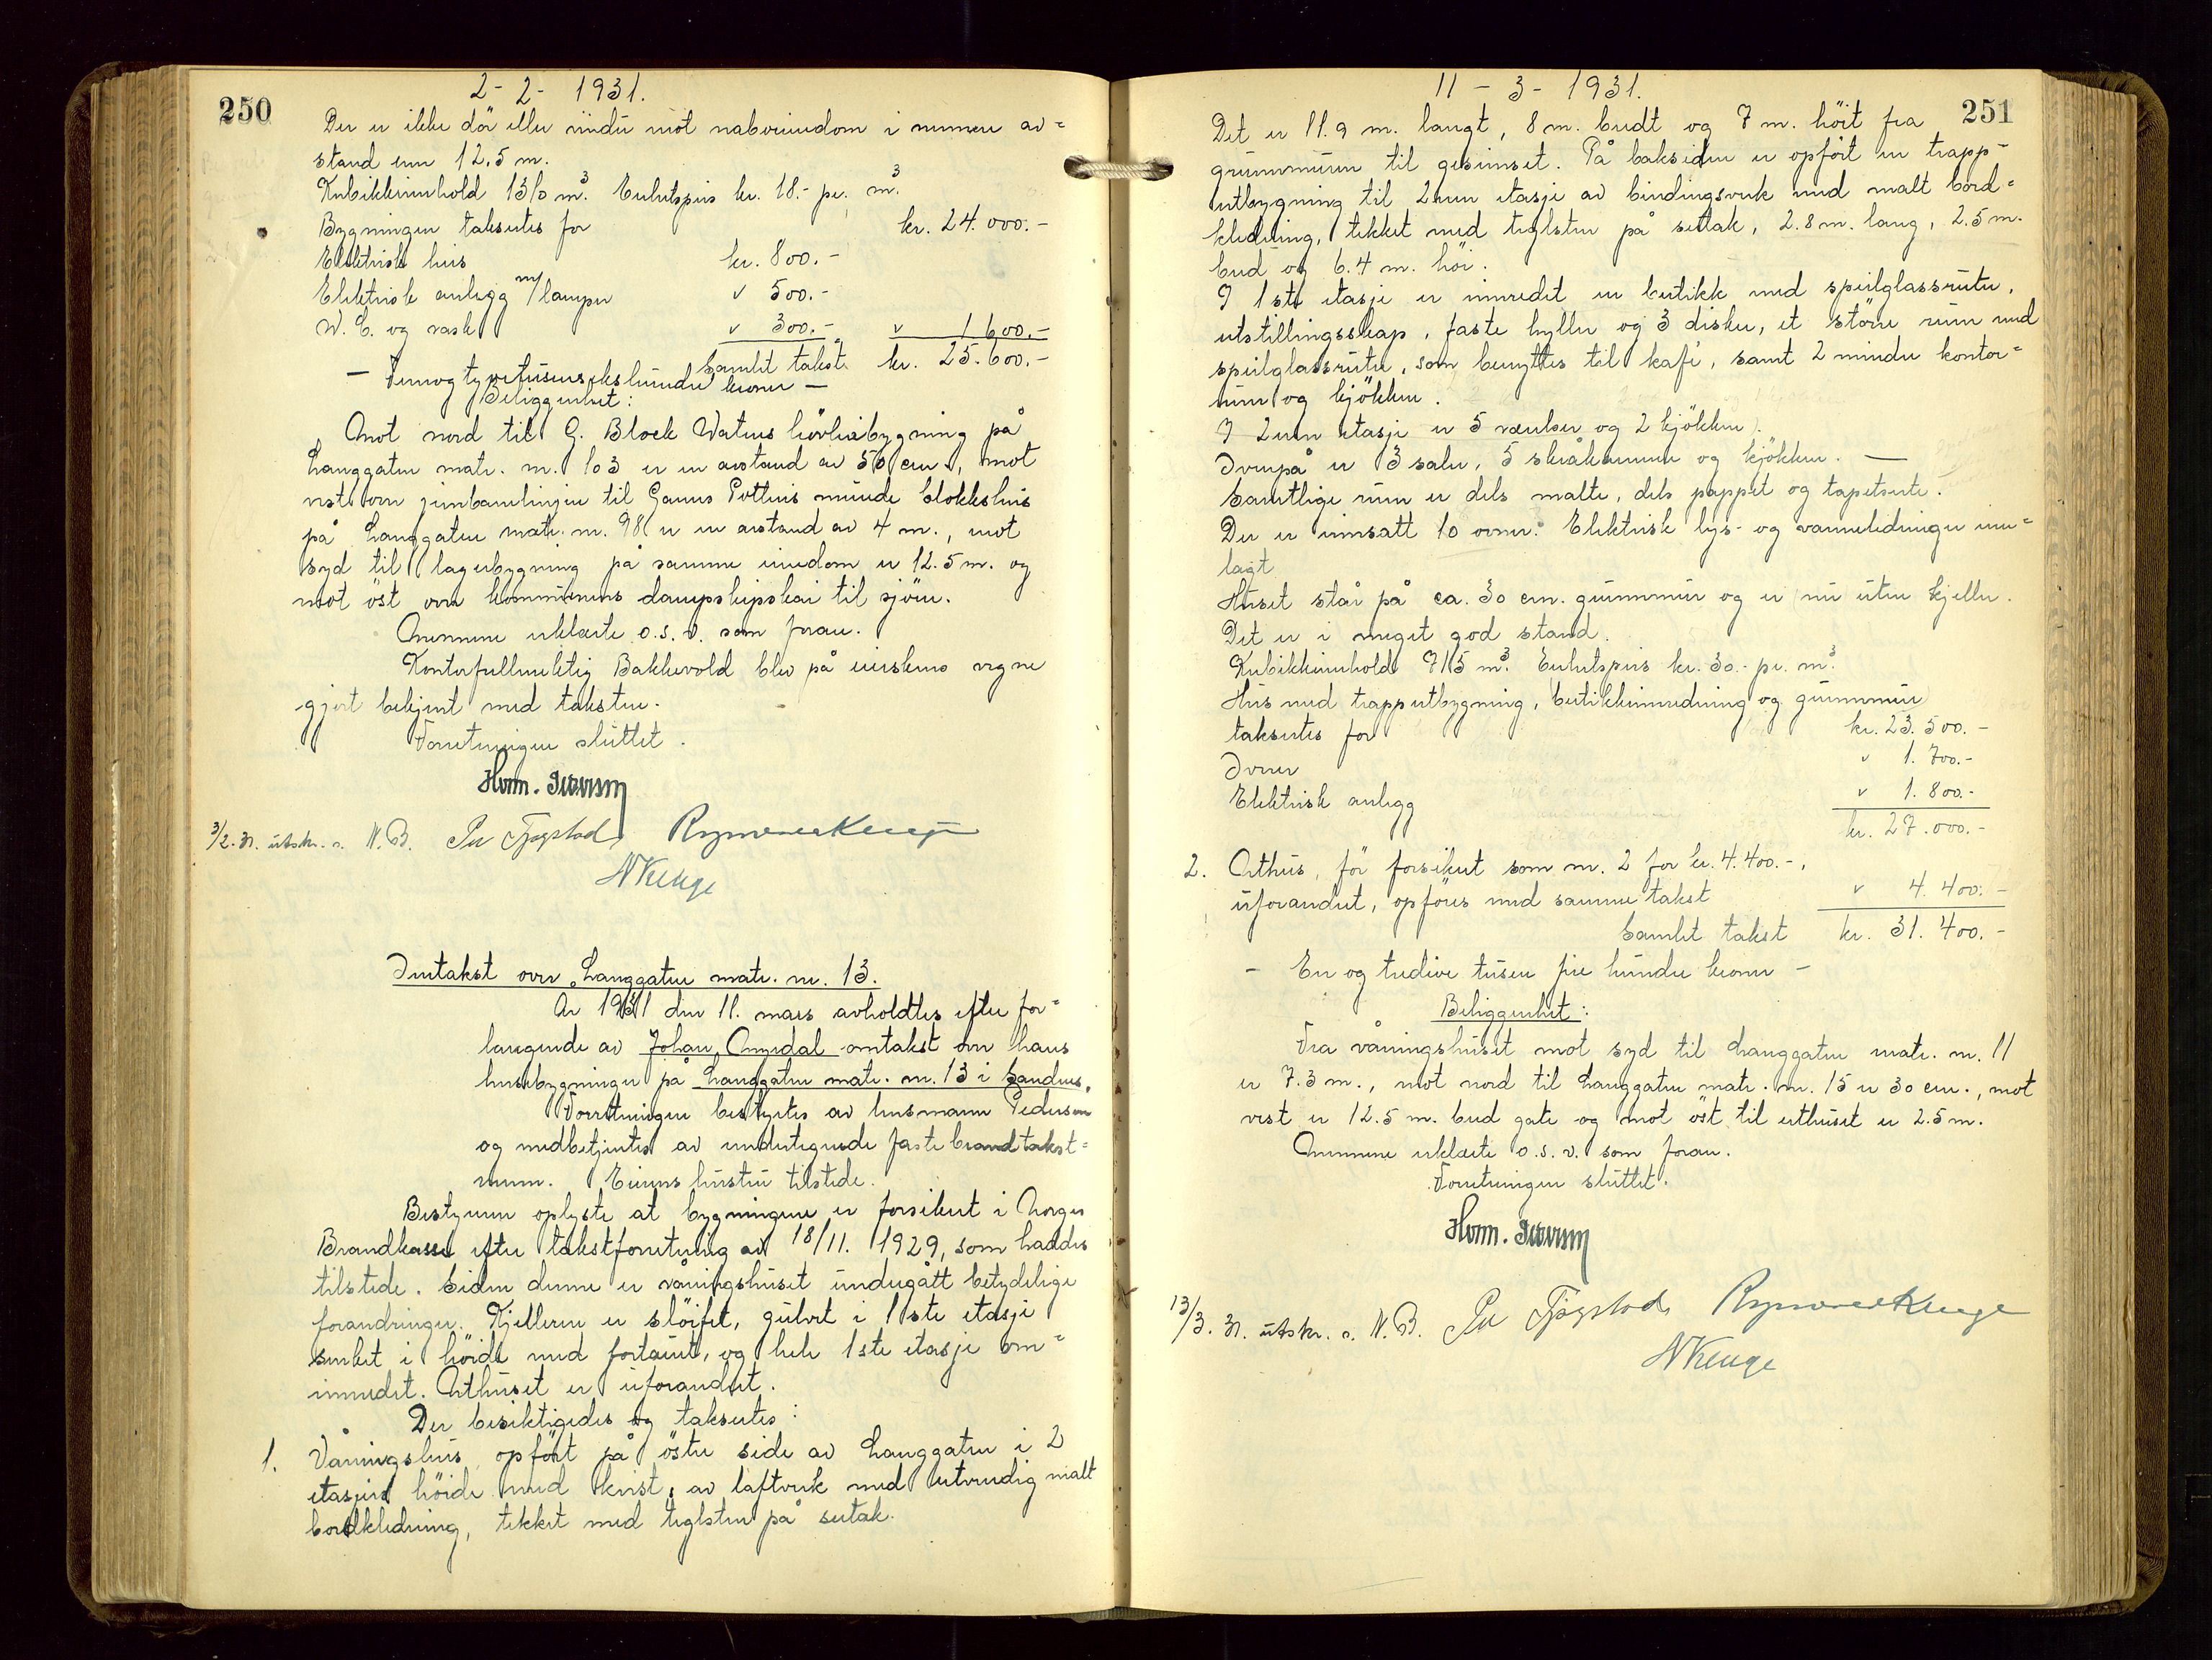 250
2-2-1931.
Der er ikke dør eller vindu mot naboeiendom i nærmere av=
stand enn 12.5 m.
Kubikkinnhold 1310 m³. Enhetspris kr. 18.- pr. m³.
Bygningen takseres for kr. 24.000.-
Elektrisk heis kr. 800.-
Elektrisk anlegg m/lamper " 500.-
W.C. og vask " 300.- " 1 600.-
Samlet takst kr. 25.600.-
— Femogtyvetusensekshundre kroner —
Beliggenhet:
Mot nord til G. Block Watnes høvleribygning på
Langgaten matr. nr. 103 er en avstand av 50 cm., mot
vest over jernbanelinjen til Ganns Potteris murede blokkshus
på Langgaten matr. nr. 98 er en avstand av 4 m., mot
syd til lagerbygning på samme eiendom er 12.5 m. og
mot øst over kommunens dampskipskai til sjøen.
Mennene erklærte o.s.v. som foran.
Kontorfullmektig Bakkevold blev på eierskens vegne
gjort bekjent med taksten.
Forretningen sluttet.
Horm. Pedersen
3/2. 31. utskr. s. N.B. Per Tjøgstad Rasmus Kluge
N Kluge
Omtakst over Langgaten matr. nr. 13.
År 1931 den 11. mars avholdtes efter for=
langende av Johan Omdal omtakst over hans
husebygninger på Langgaten matr. nr. 13 i Sandnes.
Forretningen bestyrtes av lensmann Pedersen
og medbetjentes av undertegnede faste brandtakst=
menn. Eierens hustru tilstede.
Bestyreren oplyste at bygningene er forsikret i Norges
Brandkasse efter takstforretning av 18/11. 1929, som haddes
tilstede. Siden denne er våningshuset undergått betydelige
forandringer. Kjelleren er sløifet, gulvet i 1ste etasje
senket i høide med fortauet, og hele 1ste etasje om=
innredet. Uthuset er uforandret.
Der besiktigedes og takseres:
1. Våningshus, opført på østre side av Langgaten i 2
etasjers høide med kvist, av laftverk med utvendig malt
bordkledning, tekket med teglsten på sutak.
251
11-3-1931.
Det er 11.9 m. langt, 8 m. bredt og 7 m. høit fra
grunnmuren til gesimset. På baksiden er opført en trapp-
utbygning til 2nen etasje av bindingsverk med malt bord=
kledning, tekket med teglsten på sutak, 2.8 m. lang, 2.5 m.
bred og 6.4 m. høi.
I 1ste etasje er innredet en butikk med speilglassruter,
utstillingsskap, faste hyller og 3 disker, et større rum med
speilglassruter, som benyttes til kafé, samt 2 mindre kontor=
rum og kjøkken.
I 2nen etasje er 5 værelser og 2 kjøkken.
Ovenpå er 3 saler, 5 skråkammer og kjøkken. —
Samtlige rum er dels malte, dels pappet og tapetserte.
Der er innsatt 10 ovner. Elektrisk lys- og vannledninger inn=
lagt
Huset står på ca. 30 cm. grunnmur og er nu uten kjeller.
Det er i meget god stand.
Kubikkinnhold 715 m³. Enhetspris kr. 30.- pr. m³.
Hus med trapputbygning, butikkinnredning og grunnmur
takseres for kr. 23.500.-
Ovner " 1.700.-
Elektrisk anlegg " 1.800.-
kr. 27.000.-
2. Uthus, før forsikret som nr. 2 for kr. 4.400.-,
uforandret, opføres med samme takst " 4.400.-
Samlet takst kr. 31.400.-
- En og tredive tusen fire hundre kroner -
Beliggenhet:
Fra våningshuset mot syd til Langgaten matr. nr. 11
er 7.3 m., mot nord til Langgaten matr. nr. 15 er 30 cm., mot
vest er 12.5 m. bred gate og mot øst til uthuset er 2.5 m.
Mennene erklærte o.s.v. som foran.
Forretningen sluttet.
Horm. Pedersen
13/3. 31. utskr. s. N.B. Per Tjøgstad Rasmus Kluge
N Kluge